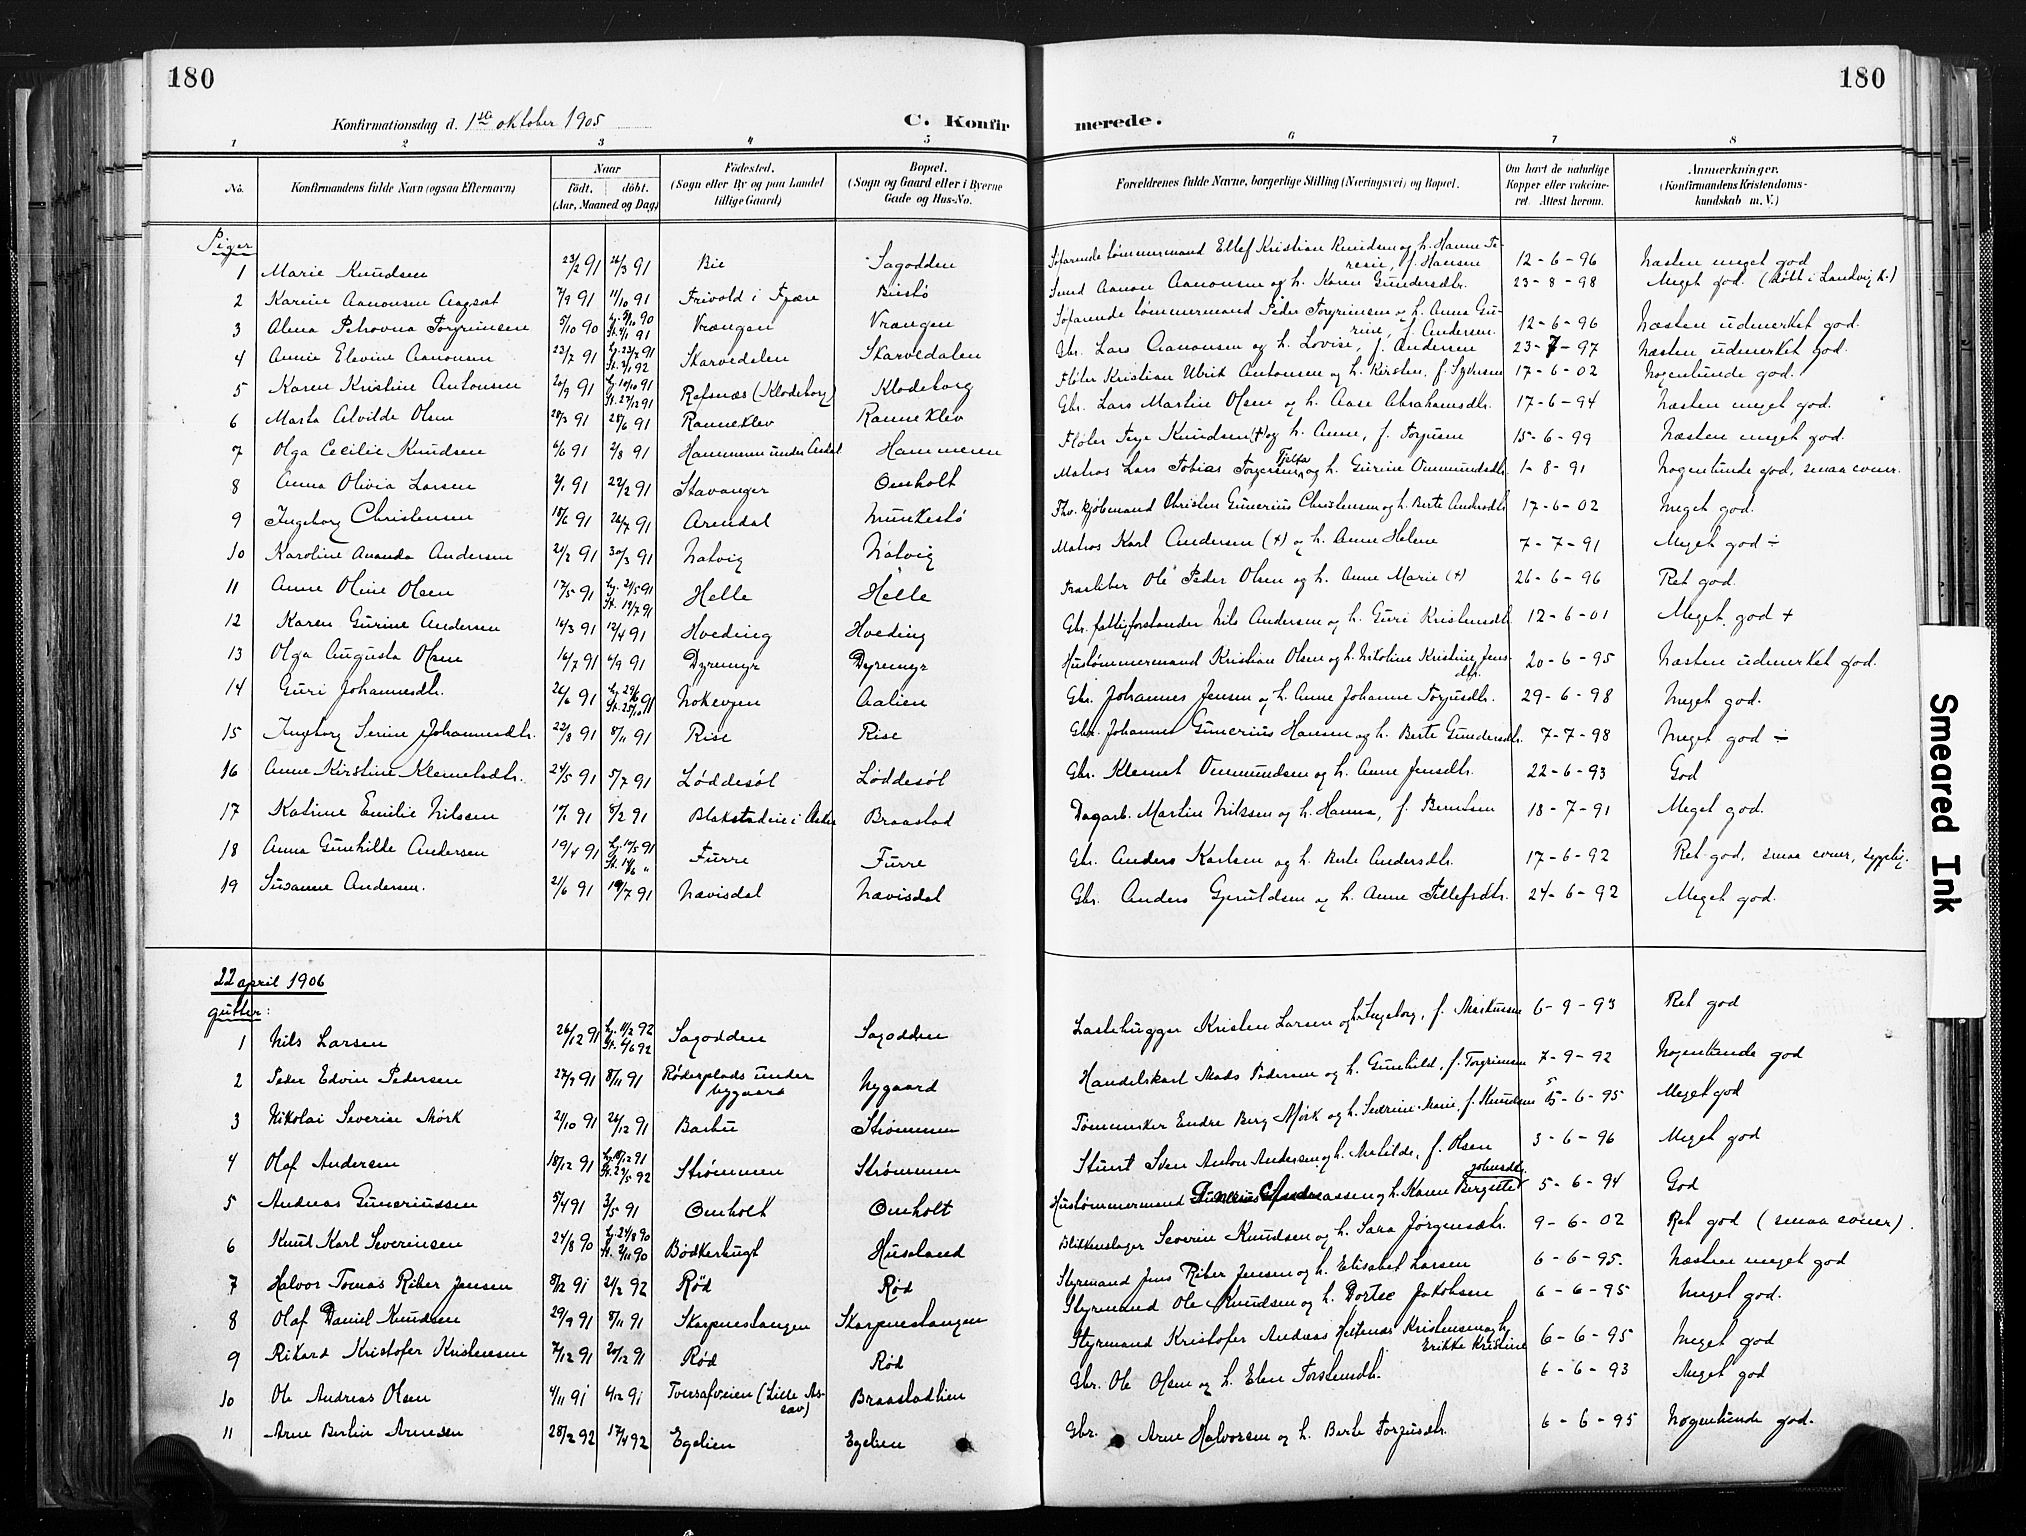 180
180
Konfirmationsdag d. 1ste oktober 1905
C. Konfir merede.
1 2 3 4 5 6 7 8
No. Konfirmandens fulde Navn (ogsaa Efternavn) Naar födt. döbt. (Aar, Maaned og Dag) Födested. (Sogn eller By og paa Landet tillige Gaard) Bopæl. (Sogn og Gaard eller i Byerne Gade og Hus-No. Forældrenes fulde Navne, borgerlige Stilling (Næringsvei) og Bopæl. Om havt de naturlige Kopper eller vakcineret. Attest herom. Anmærkninger. (Konfirmandens Kristendomskundskab m. V.)
Piger
1 Marie Knudsen 23/2 91 26/3 91 Bie Sagodden Søfarende tømmermand Ellef Kristian Knudsen og h. Hanne Teresie, f. Hansen 12-6-96 Næsten meget god
2 Karine Aanonsen Aagsat 7/9 91 11/10 91 Frivold i Fjære Biestø Smed Aanon Aanonsen og h. Karen Gundersdtr. 23-8-98 Meget god. (døbt i Landvig k.)
3 Alma Petrovna Torgrimsen 5/10 90 Vrængen Vrængen Søfarende tømmermand Peder Torgrimsen og h. Anna Gurine, f. Andersen 12-6-96 Næsten udmerket god.
4 Annie Elevine Aanonsen 23/7 91 Hj. 23/7 91 St. 4/1 92 Skarvedalen Skarvedalen Gbr. Lars Aanonsen og h. Lovise, f. Andersen 23-7-97 Næsten udmerket god.
5 Karen Kristine Antonsen 20/9 91 Hj. 10/10 91 St. 27/12 91 Refsnæs (Klodeborg) Klodeborg Fløter Kristian Ulrik Antonsen og h. Kirsten, f. Syvertsen 17-6-02 Nogenlunde god.
6 Marta Alvilde Olsen 28/3 91 28/6 91 Ranneklev Ranneklev Gbr. Lars Martin Olsen og h. Aase Abrahamsdtr. 17-6-94 Næsten meget god.
7 Olga Cecilie Knudsen 6/6 91 2/8 91 Hammeren under Hammeren Fløter Terje Knudsen (+) og h. Anne, f. Torjusen 15-6-99 Næsten meget god.
8 Anna Olivia Larsen 2/1 91 22/2 91 Stavanger Omholt Matros Lars Tobias Torgersen Fjelfa og h. Gurine Ommundsdtr. 1-8-91 Nogenlunde god, smaa evner.
9 Ingeborg Christensen 18/6 91 26/7 91 Arendal Munkestø Fhv. kjøbmand Christen Gunerius Christensen og h. Berte Andersdtr. 17-6-02 Meget god.
10 Karoline Ananda Andersen 21/2 91 30/3 91 Natvig Natvig Matros Karl Andersen (+) og h. Anne Helene 7-7-91 Meget god ÷
11 Anne Oline Olsen 17/5 91 Hj. 21/5 91 St. 19/7 91 Helle Helle Ole Peder Olsen og h. Anne Marie (+) 26-6-96 Ret god.
12 Karen Gurine Andersen 14/3 91 12/4 91 Hveding Hveding Gbr. fattigforstander Nils Andersen og h. Guri Kristensdtr. 12-6-01 Meget god +
13 Olga Augusta Olsen 16/7 91 6/9 91 Dyremyr Dyremyr Hustømmermand Kristian Olsen og h. Nikoline Kristine Jensdtr. 20-6-95 Næsten udmerket god.
14 Guri Johannesdtr. 26/6 91 Hj. 29/6 91 St. 25/10 91 Nokevjen Aalien Gbr. Johannes Jensen og h. Anne Johanne Torjusdtr. 29-6-98 Meget god.
15 Ingeborg Serine Johannesdtr. 22/8 91 8/11 91 Rise Rise Gbr. Johannes Gunerius Hansen og h. Berte Gundersdtr. 7-7-98 Meget god ÷
16 Anne Kirstine Klemetsdtr. 24/5 91 5/7 91 Løddesøl Løddesøl Gbr. Klemet Ommundsen og h. Anne Jensdtr. 22-6-93 God
17 Katrine Emilie Nilsen 17/1 91 8/2 91 Blakstadeie i Braastad Dagarb. Martin Nilssen og h. Hanna, f. Berntsen 18-7-91 Meget god.
18 Anna Gunhilde Andersen 19/4 91 Hj. 17/5 91 St. 14/6 " Furre Furre Gbr. Anders Karlsen og h. Berte Andersdtr. 17-6-92 Ret god, smaa evner, sygelig.
19 Susanne Andersen. 21/6 91 19/7 91 Nævisdal Nævisdal Gbr. Anders Gjeruldsen og h. Anne Tellefsdtr. 24-6-92 Meget god.
22 april 1906
gutter:
1 Nils Larsen 26/12 91 Hj. 11/2 92 St. 6/6 92 Sagodden Sagodden Lastehugger Kristen Larsen og h. Ingeborg, f. Markussen 6-9-93 Ret god
2 Peder Edvin Pedersen 27/9 91 8/11 91 Røderplads under Nygaard Nygaard Handelskarl Mads Pedersen og h. Gunhild, f. Torgrimsen 7-9-92 Nogenlunde god
3 Nikolai Severin Mørk 21/10 91 26/12 91 Barbu Strømmen Tømmesker Endre Berg Mørk og h. Severine Marie, f. Knudsen 5-6-95 Meget god
4 Olaf Andersen 18/12 91 Strømmen Strømmen Stuert Sven Anton Andersen og h. Matilde, f. Olsen 3-6-96 Meget god
5 Andreas Guneriussen 5/4 91 3/5 91 Omholt Omholt Hustømmermand Gunerius Andreassen og h. Karen Bergitte Johnsdtr. 5-6-94 God
6 Knut Karl Severinsen 24/8 90 Hj. 24/8 90 St. 2/11 90 Bødkerbugt Huseland Blikkenslager Severin Knudsen og h. Sara Jørgensdtr. 9-6-02 Ret god (smaa evner).
7 Halvor Tomas Riber Jensen 8/2 91 21/2 92 Rød Rød Styrmand Jens Riber Jensen og h. Elisabet Larsen 6-6-95. Næsten meget god
8 Olaf Daniel Knudsen 29/9 91 8/11 91 Skarpnestangen Skarpnestangen Styrmand Ole Knudsen og h. Dortee Jakobsen 6-6-95 Meget god.
9 Rikard Kristofer Kristensen 7/12 91 20/12 91 Rød Rød Styrmand Kristofer Andreas Heltenæs Kristensen og h. Erikke Kristine 6-6-95 Meget god
10 Ole Andreas Olsen 4/11 91 6/12 91 Tversafveien (Lille Assav) Braastadlien Gbr. Ole Olsen og h. Elen Torstensdtr. 6-6-93 Meget god
11 Arne Bertin Arnesen 28/2 92 17/4 92 Egelien Egelien Gbr. Arne Halvorsen og h. Berte Torjusdtr. 6-6-95 Nogenlunde god.
Smeared Ink